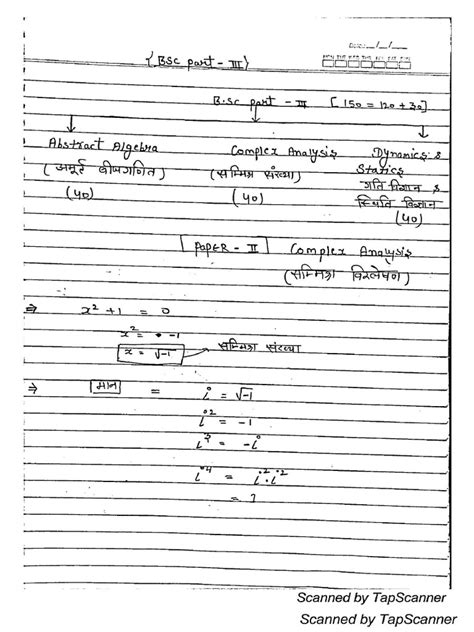 Date: _/_/_
{BSC part - III}
B.sc part - III [150 = 120 + 30]
Abstract Algebra
(अमूर्त बीजगणित)
(40)
Complex Analysis
(सम्मिश्र संख्या)
(40)
Dynamics &
Statics
गति विज्ञान &
स्थिति विज्ञान
(40)
PAPER - II Complex Analysis
(सम्मिश्र विश्लेषण)
⇒ x² + 1 = 0
x² = -1
x = √-1 → सम्मिश्र संख्या
⇒ मान = i = √-1
i² = -1
i³ = -i
i⁴ = i².i²
= 1
Scanned by TapScanner
Scanned by TapScanner